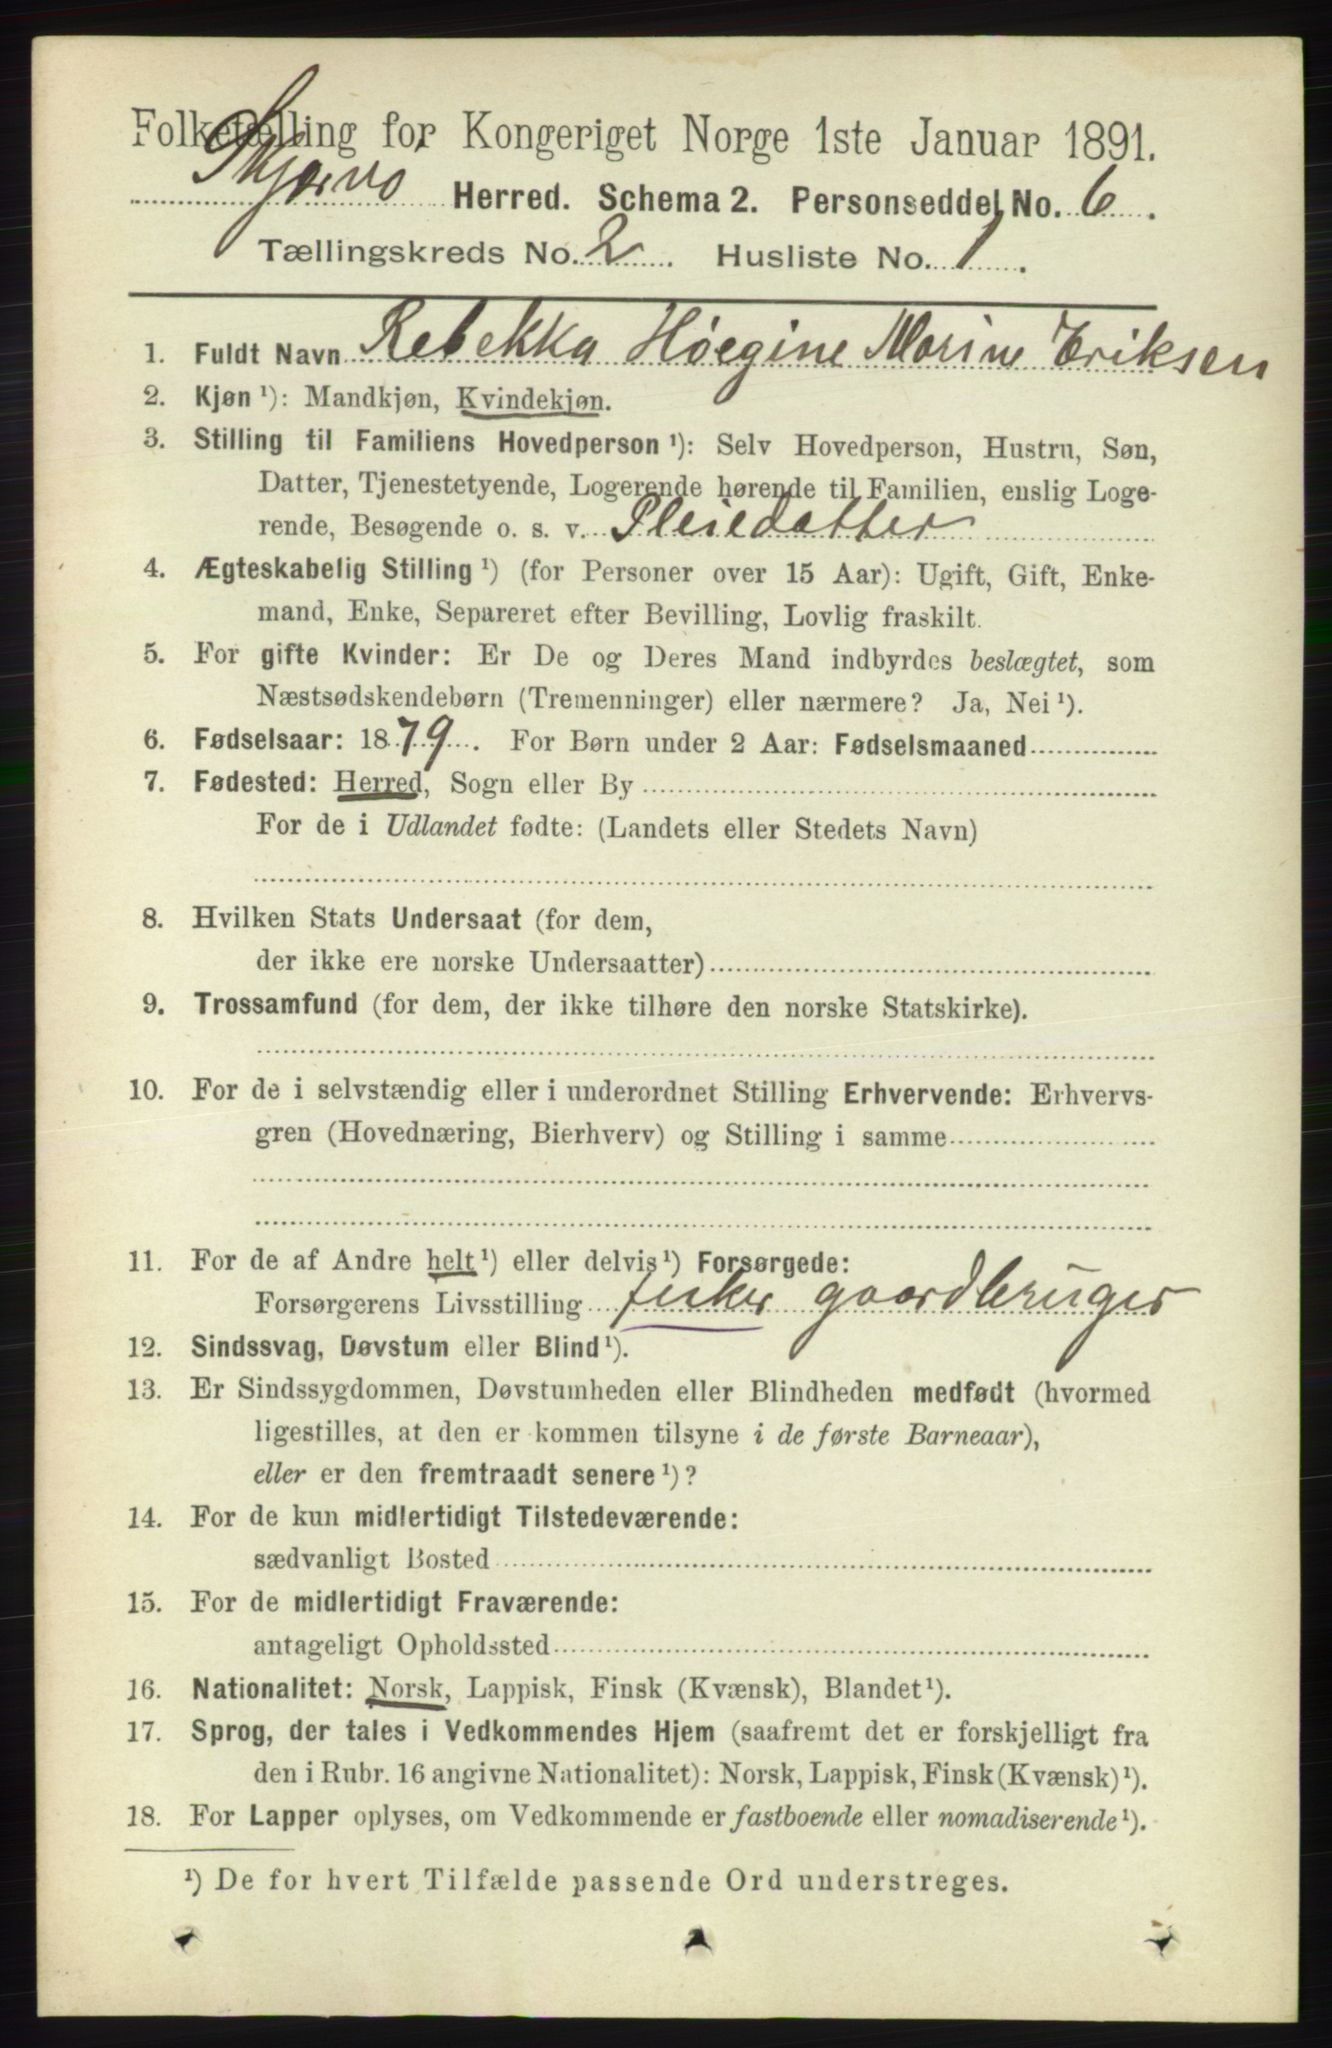 Folketælling for Kongeriget Norge 1ste Januar 1891.
Skjærvø Herred. Schema 2. Personseddel No. 6.
Tællingskreds No. 2. Husliste No. 1.
1. Fuldt Navn Rebekka Høegine Marine Eriksen
2. Kjøn ¹): Mandkjøn, Kvindekjøn.
3. Stilling til Familiens Hovedperson ¹): Selv Hovedperson, Hustru, Søn,
Datter, Tjenestetyende, Logerende hørende til Familien, enslig Loge-
rende, Besøgende o. s. v. Pleiedatter
4. Ægteskabelig Stilling ¹) (for Personer over 15 Aar): Ugift, Gift, Enke-
mand, Enke, Separeret efter Bevilling, Lovlig fraskilt.
5. For gifte Kvinder: Er De og Deres Mand indbyrdes beslægtet, som
Næstsødskendebørn (Tremenninger) eller nærmere? Ja, Nei ¹).
6. Fødselsaar: 1879. For Børn under 2 Aar: Fødselsmaaned
7. Fødested: Herred, Sogn eller By
For de i Udlandet fødte: (Landets eller Stedets Navn)
8. Hvilken Stats Undersaat (for dem,
der ikke ere norske Undersaatter)
9. Trossamfund (for dem, der ikke tilhøre den norske Statskirke).
10. For de i selvstændig eller i underordnet Stilling Erhvervende: Erhvervs-
gren (Hovednæring, Bierhverv) og Stilling i samme
11. For de af Andre helt ¹) eller delvis ¹) Forsørgede:
Forsørgerens Livsstilling fisker gaardbruger
12. Sindssvag, Døvstum eller Blind ¹).
13. Er Sindssygdommen, Døvstumheden eller Blindheden medfødt (hvormed
ligestilles, at den er kommen tilsyne i de første Barneaar),
eller er den fremtraadt senere ¹)?
14. For de kun midlertidigt Tilstedeværende:
sædvanligt Bosted
15. For de midlertidigt Fraværende:
antageligt Opholdssted
16. Nationalitet: Norsk, Lappisk, Finsk (Kvænsk), Blandet ¹).
17. Sprog, der tales i Vedkommendes Hjem (saafremt det er forskjelligt fra
den i Rubr. 16 angivne Nationalitet): Norsk, Lappisk, Finsk (Kvænsk) ¹).
18. For Lapper oplyses, om Vedkommende er fastboende eller nomadiserende ¹).
¹) De for hvert Tilfælde passende Ord understreges.